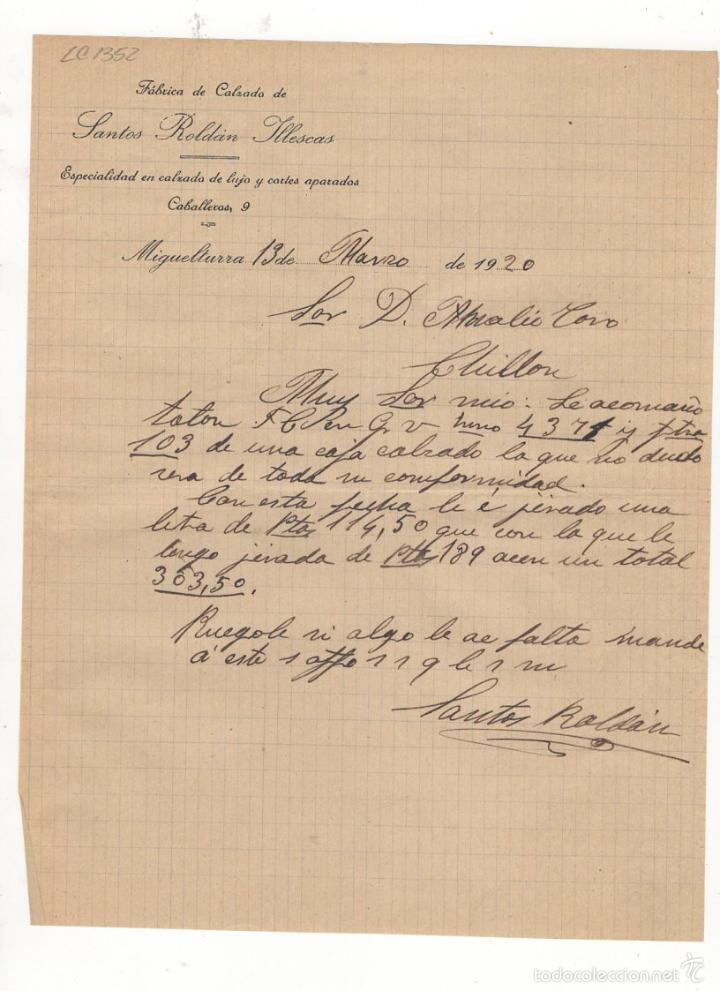 LC 1352
Fábrica de Calzado de
Santos Roldán Illescas
Especialidad en calzado de lujo y cortes aparados
Caballeros, 9
Miguelturra 13 de Marzo de 1920
Sor D. Amalio Toro
Chillon
Muy Sor mio: Le acomaño
talon F C en G v numo 4371 y ftra
103 de una caja calzado la que no dudo
sera de toda su comformidad.
Con esta fecha le é jirado una
letra de Ptas 114,50 que con la que le
tengo jirada de Ptas 189 acen un total
303,50.
Ruegole si algo le ae falta mande
á este s affo s s q l e s m
Santos Roldán
todocoleccion.net